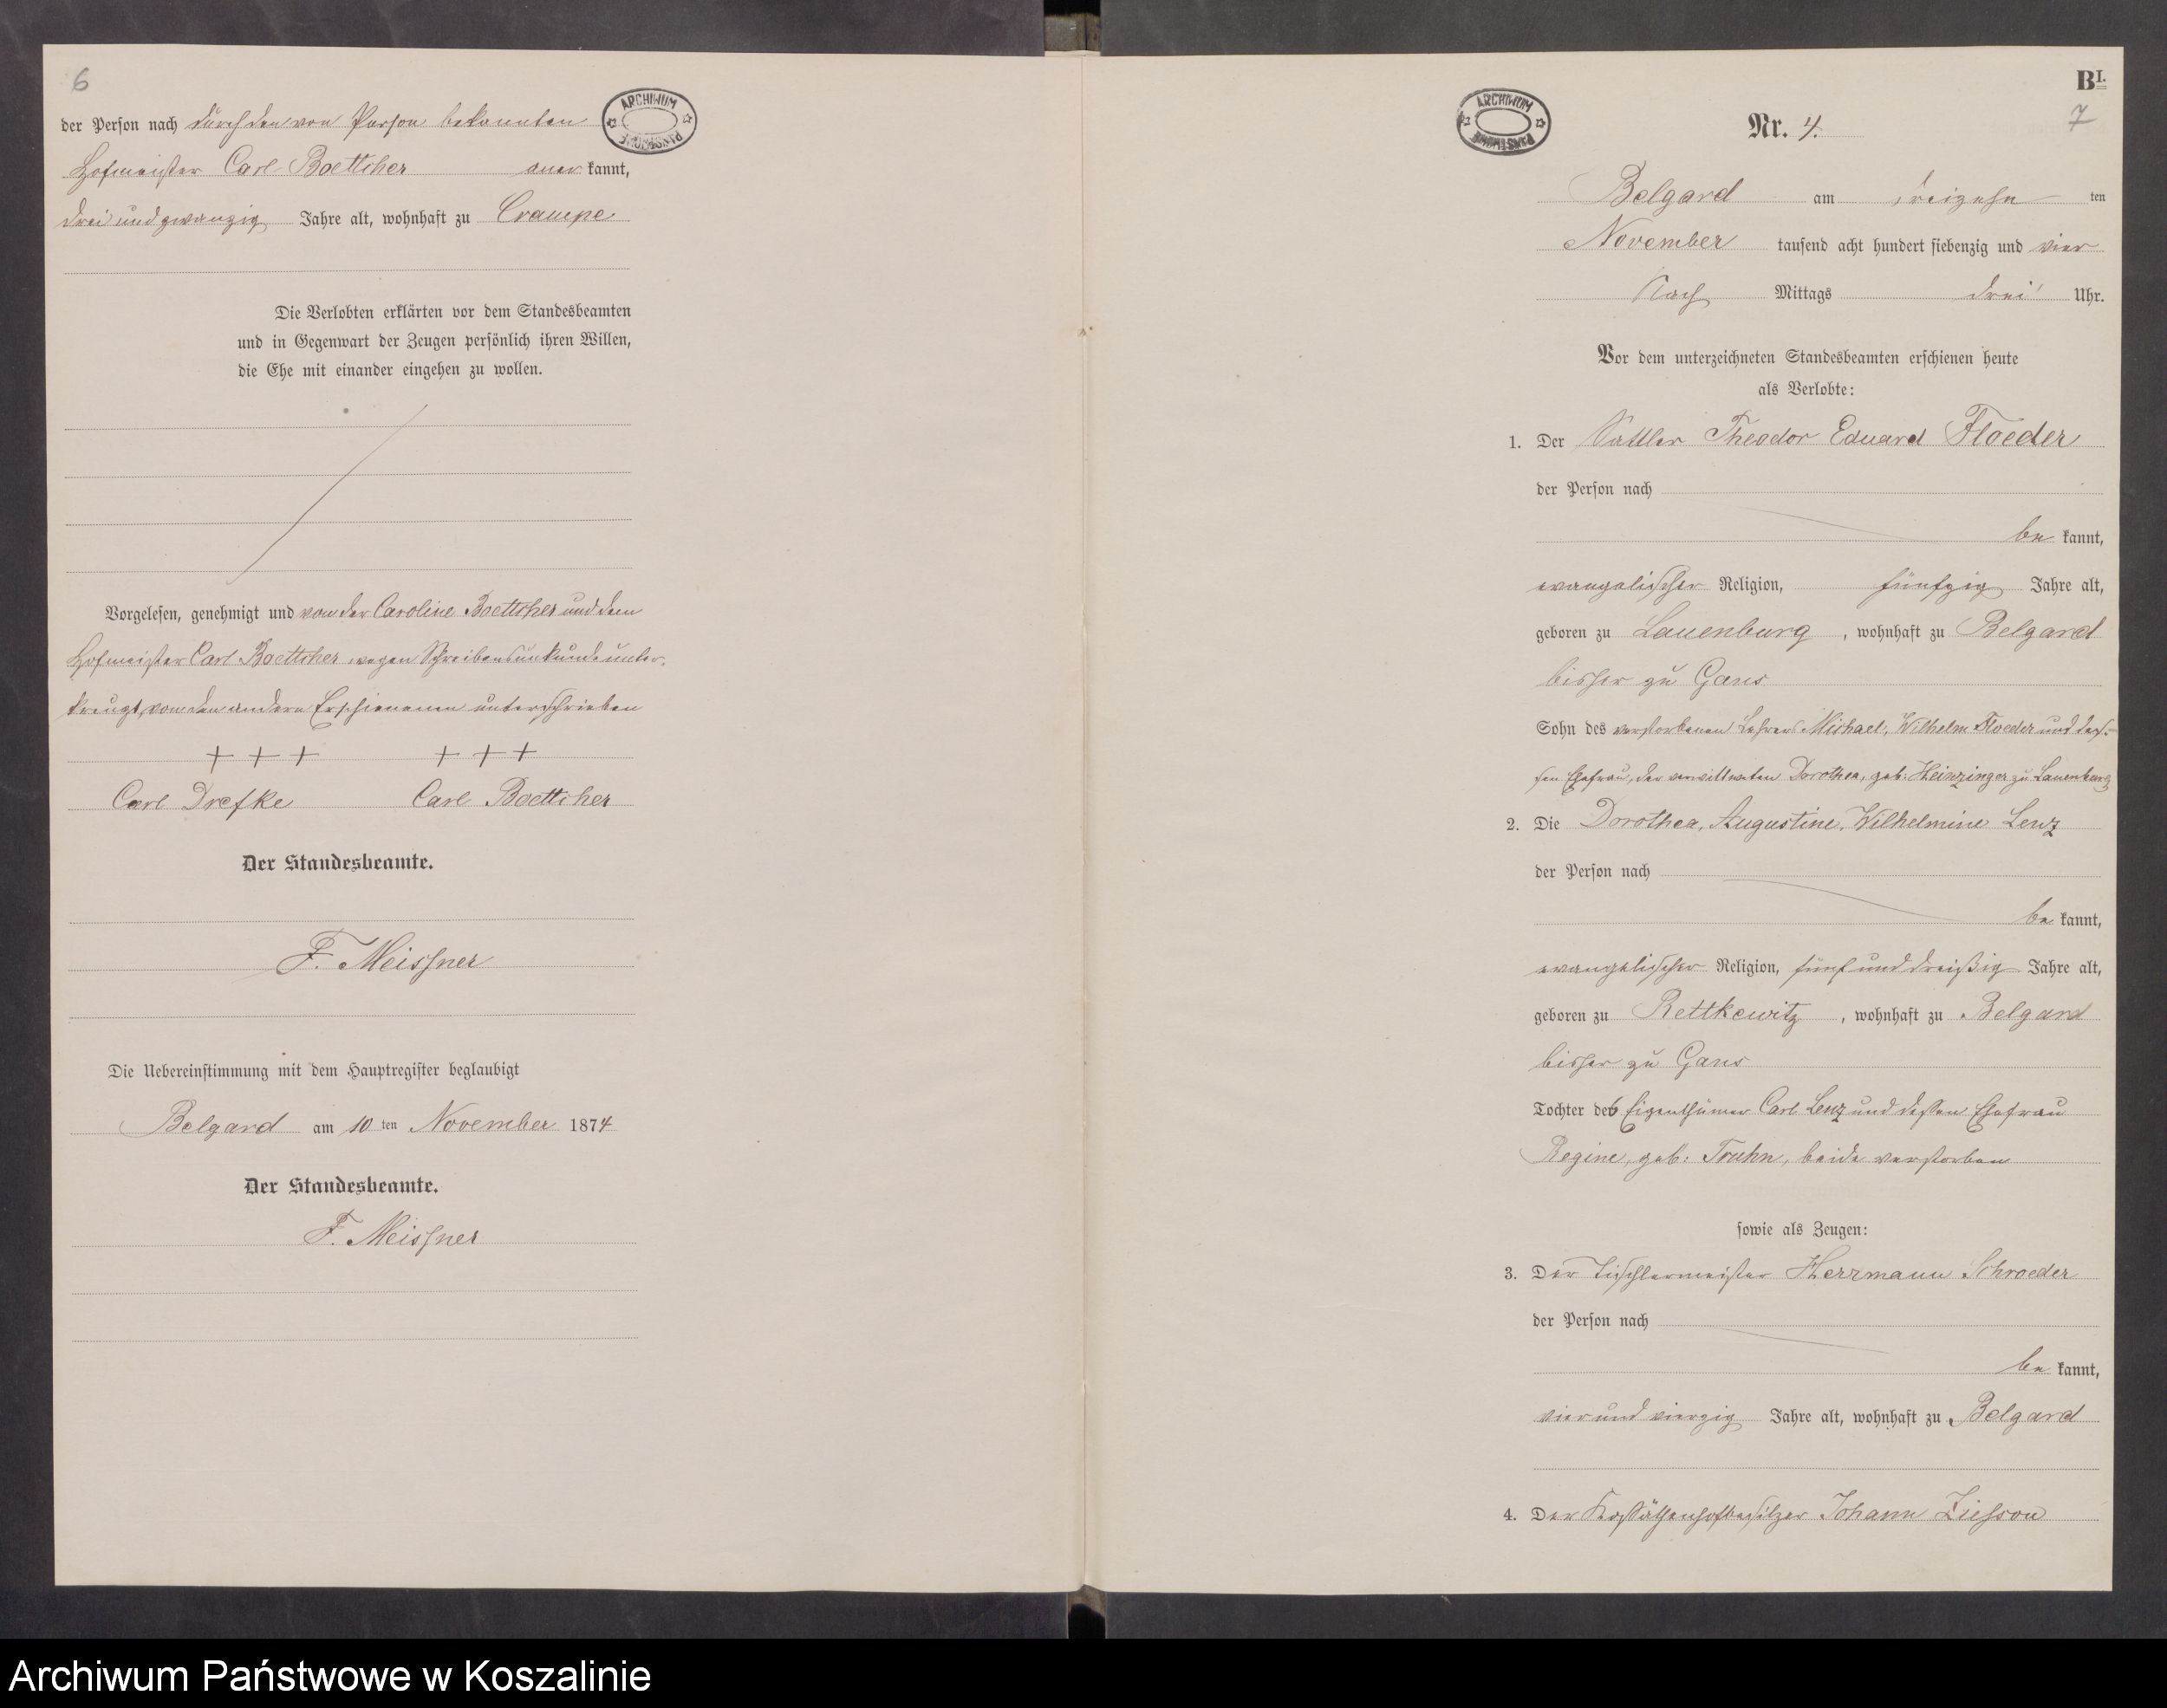 6
der Person nach durch den von Person bekannten
Hofmeister Carl Boettcher aner kannt,
drei und zwanzig Jahre alt, wohnhaft zu Crampe
ARCHIWUM PAŃSTWOWE
Die Verlobten erklärten vor dem Standesbeamten
und in Gegenwart der Zeugen persönlich ihren Willen,
die Ehe mit einander eingehen zu wollen.
Vorgelesen, genehmigt und von der Caroline Boettcher und dem
Hofmeister Carl Boettcher, wegen Schreibensunkunde unter-
kreuzt, von den andern Erschienenen unterschrieben
+ + + + + +
Carl Drefke Carl Boettcher
Der Standesbeamte.
F. Meissner
Die Uebereinstimmung mit dem Hauptregister beglaubigt
Belgard am 10 ten November 1874
Der Standesbeamte.
F. Meissner
B I.
7
ARCHIWUM PAŃSTWOWE
Nr. 4.
Belgard am dreizehn ten
November tausend acht hundert siebenzig und vier
Nach Mittags drei Uhr.
Vor dem unterzeichneten Standesbeamten erschienen heute
als Verlobte:
1. Der Sattler Theodor Eduard Floeder
der Person nach
be kannt,
evangelischer Religion, fünfzig Jahre alt,
geboren zu Lauenburg, wohnhaft zu Belgard
bisher zu Gans
Sohn des verstorbenen Lehrers Michael, Wilhelm Floeder und des-
sen Ehefrau, der verwittweten Dorothea, geb. Heinzinger zu Lauenburg
2. Die Dorothea, Augustine, Wilhelmine Lenz
der Person nach
be kannt,
evangelischer Religion, fünf und dreißig Jahre alt,
geboren zu Rettkewitz, wohnhaft zu Belgard
bisher zu Gans
Tochter des Eigenthümer Carl Lenz und dessen Ehefrau
Regine, geb: Truhn, beide verstorben
sowie als Zeugen:
3. Der Tischlermeister Herrmann Schroeder
der Person nach
be kannt,
vier und vierzig Jahre alt, wohnhaft zu Belgard
4. Der Kossäthenhofbesitzer Johann Ziesson
Archiwum Państwowe w Koszalinie